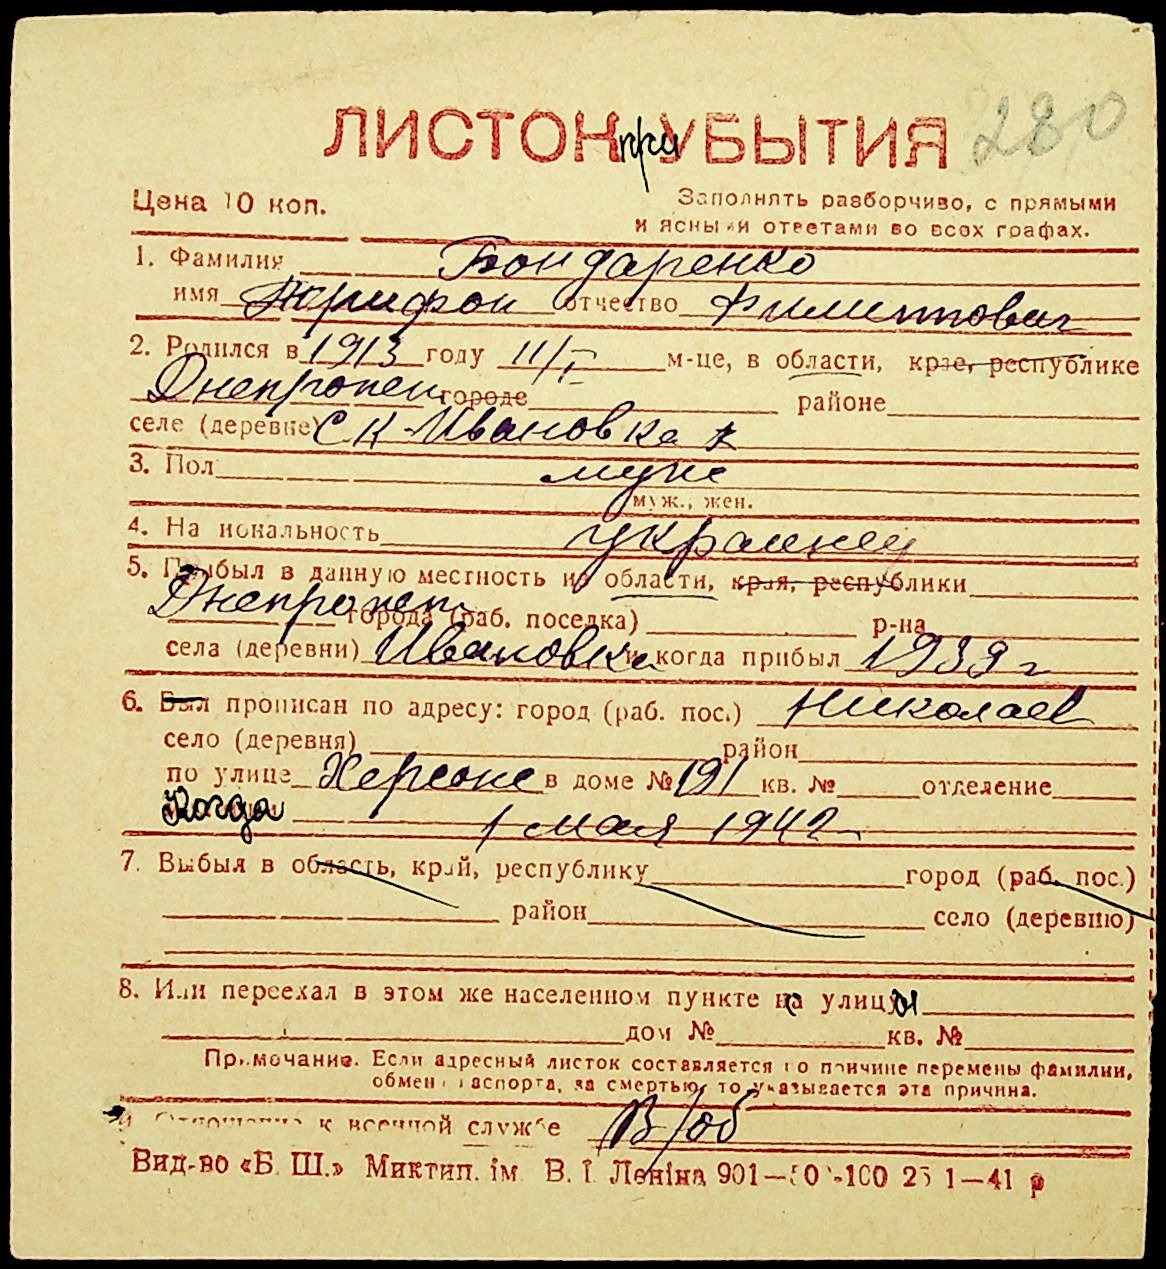 280
ЛИСТОК при УБЫТИЯ
Цена 10 коп.
Заполнять разборчиво, с прямыми
и ясными ответами во всех графах.
1. Фамилия Бондаренко
имя Трифон отчество Филиппович
2. Родился в 1913 году 11/I м-це, в области, крае, республике
Днепропет городе районе
селе (деревне) с к Ивановка
3. Пол муж
муж., жен.
4. Национальность украинец
5. Прибыл в данную местность из области, края, республики
Днепропет города (раб. поселка) р-на
села (деревни) Ивановка и когда прибыл 1939 г
6. Был прописан по адресу: город (раб. пос.) Николаев
село (деревня) район
по улице Херсонс в доме № 191 кв. № отделение
Когда 1 мая 1942
7. Выбыл в область, край, республику город (раб. пос.)
район село (деревню)
8. Или переехал в этом же населенном пункте на улицу
дом № кв. №
Примечание. Если адресный листок составляется по причине перемены фамилии,
обмена паспорта, за смертью, то указывается эта причина.
9. Отношение к военной службе В/об
Вид-во «Б. Ш.» Миктип. ім. В. І. Леніна 901— 100 1—41 р